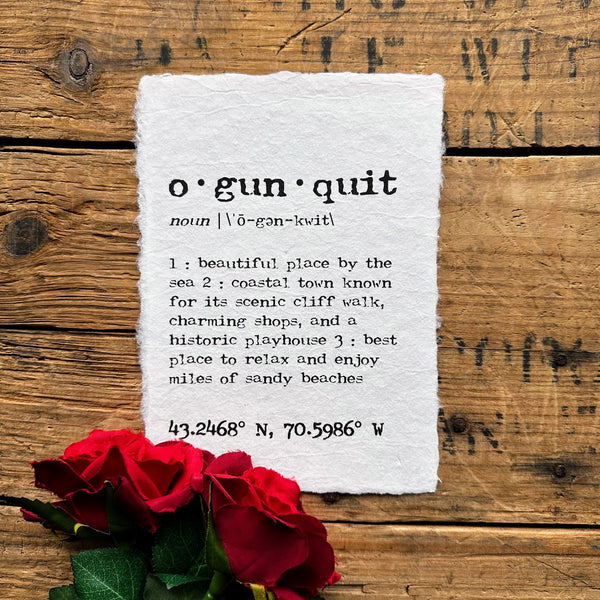 o·gun·quit
noun | \ˈō-gən-kwit\
1 : beautiful place by the
sea 2 : coastal town known
for its scenic cliff walk,
charming shops, and a
historic playhouse 3 : best
place to relax and enjoy
miles of sandy beaches
43.2468° N, 70.5986° W